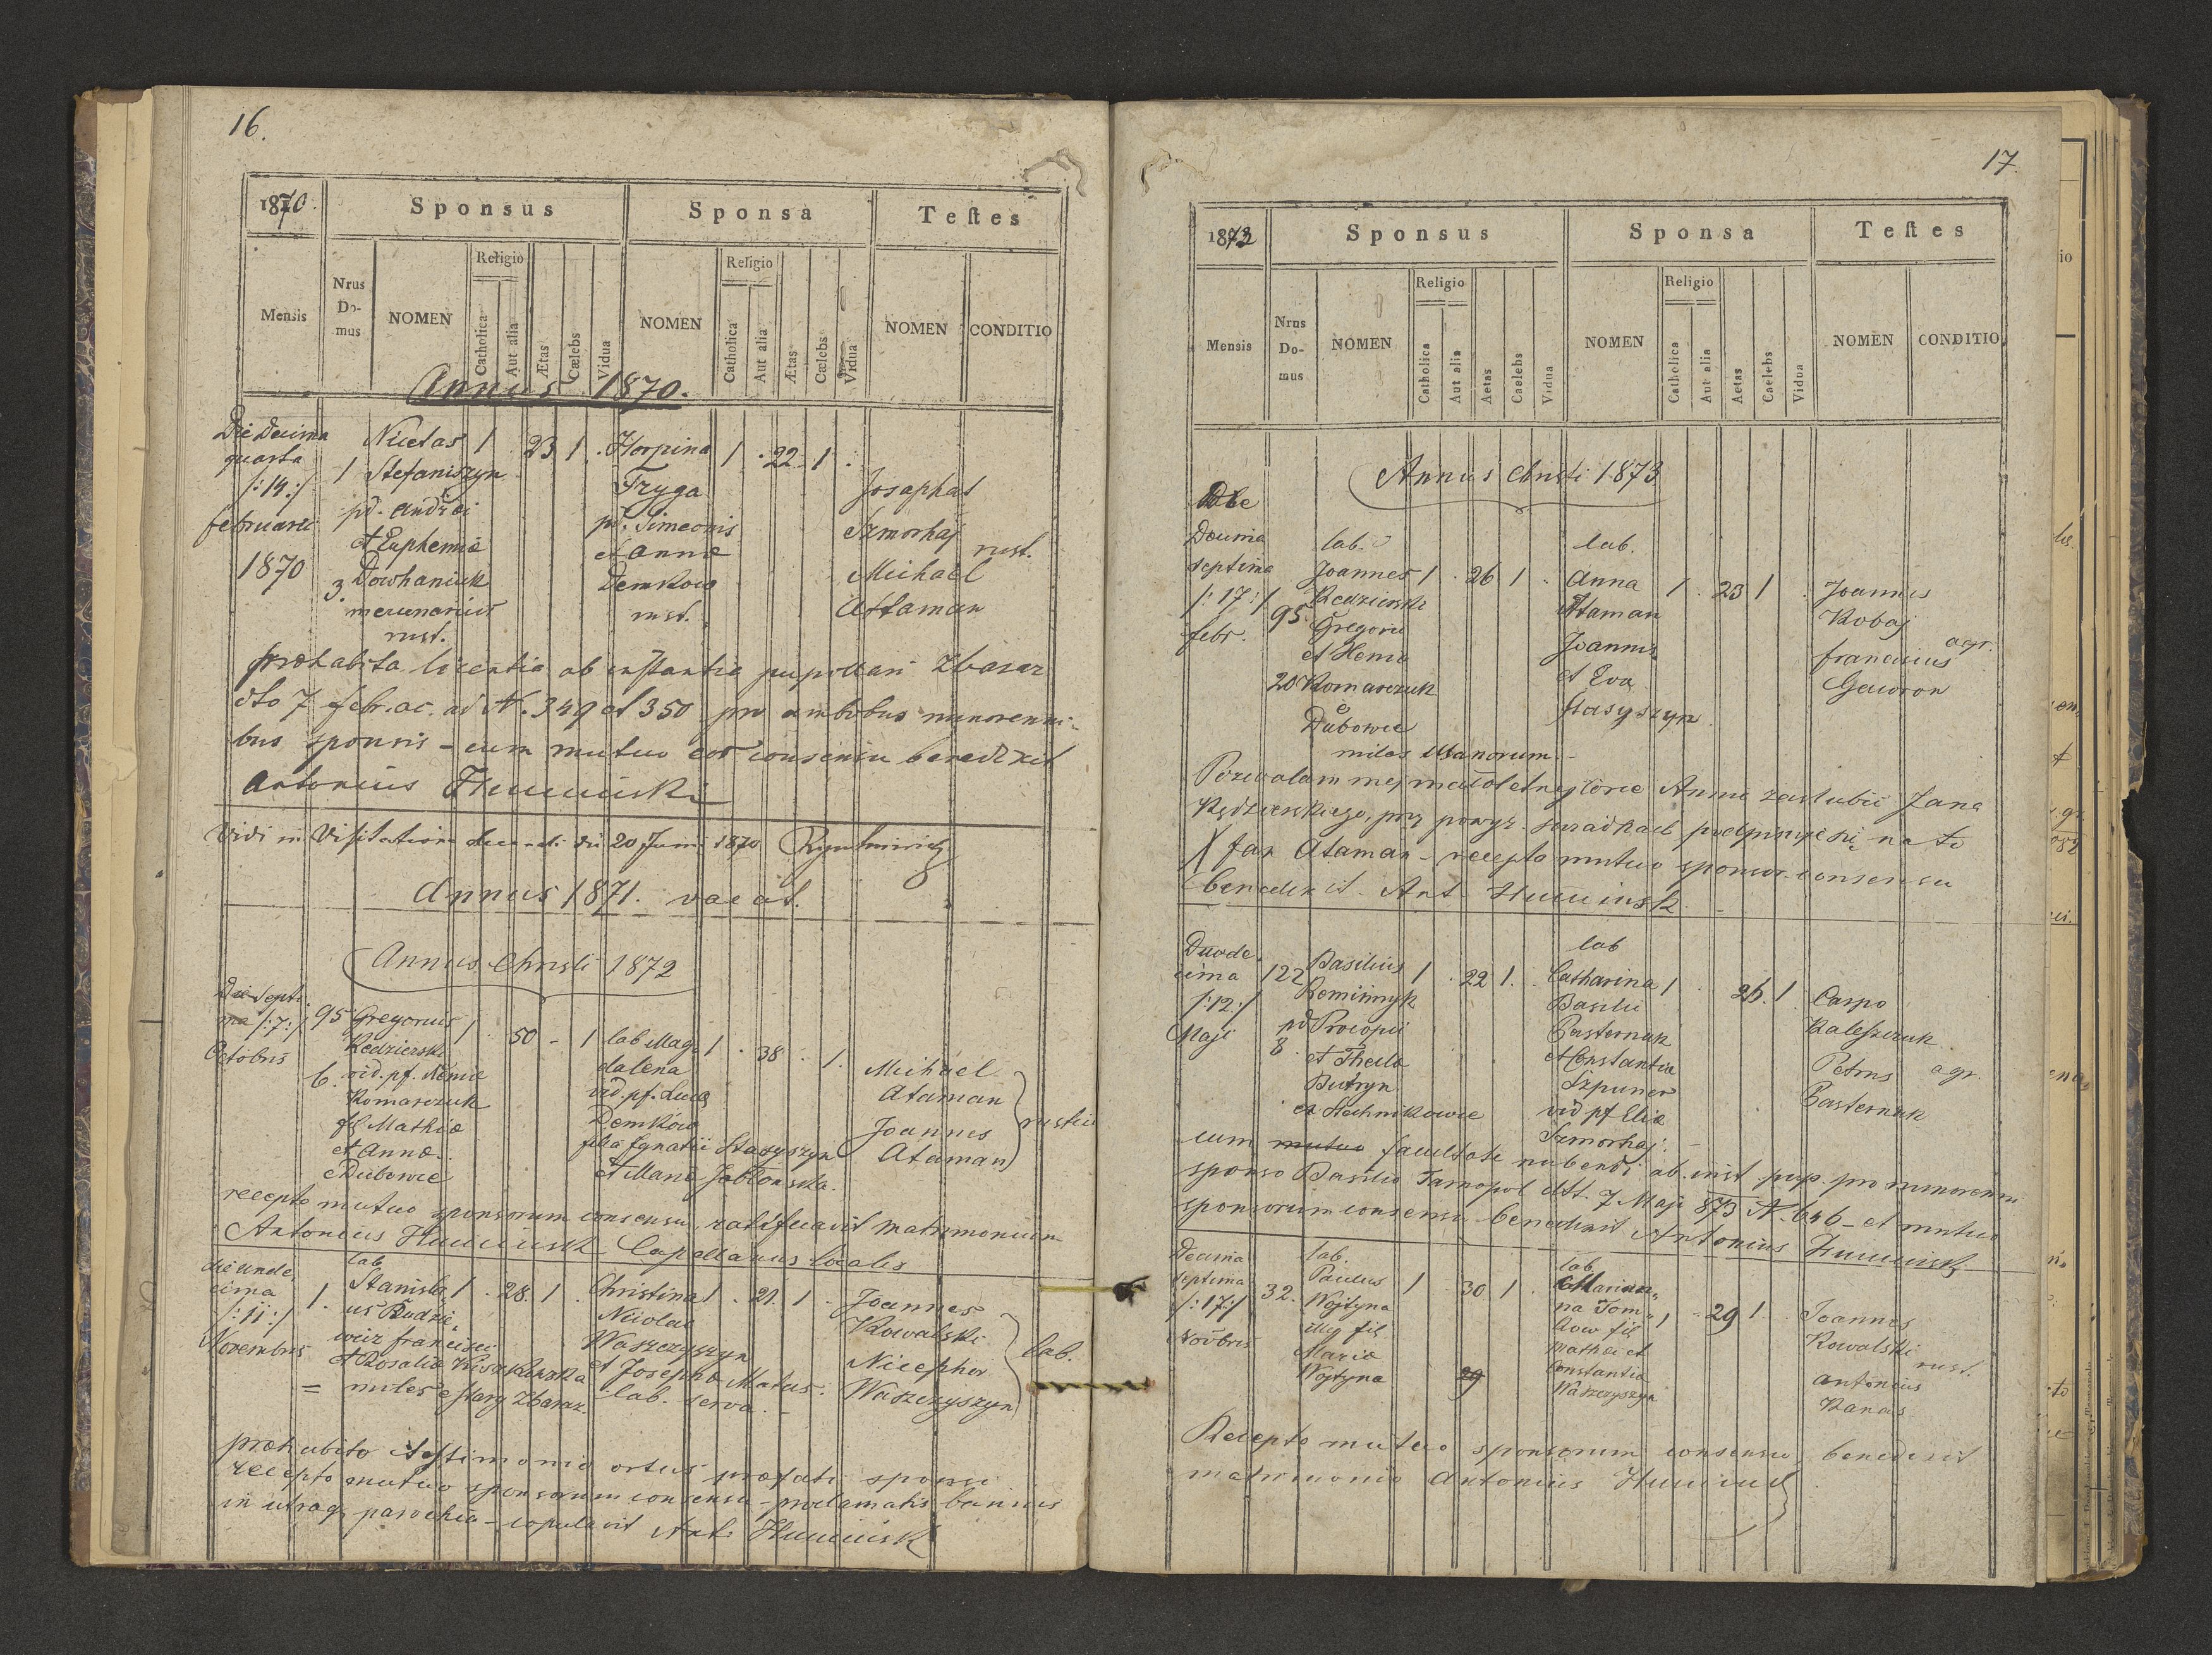 16.
1870.
Sponsus
Sponsa
Teſtes
Mensis
Nrus Do-mus
NOMEN
Religio
Catholica
Aut alia
Ætas
Cælebs
Vidua
NOMEN
Religio
Catholica
Aut alia
Ætas
Cælebs
Vidua
NOMEN
CONDITIO
Annus 1870.
Die Decima
quarta
/:14:/
februarii
1870
1
3.
Nicetas
Stefaniszyn
pd. Andrei
et Euphemiæ
Dowhaniuk
mercenarius
rust.
1 . 23 1 .
Horpina
Fryga
pd. Simeonis
et Annæ
Demkow
rust.
1 . 22 1 .
Josaphat
Szmorhaj
Michael
Attaman
rust.
præhabita licentia ab instantia pupillari Zbaraz
dto 7 febr. ac. ad N. 349 et 350 pro ambobus minorenni-
bus sponsis - cum mutuo eor consensu benedixit
Antonius
Vidi in Visitatione decanali die 20 Juni 1870
Annus 1871. vacat.
Annus Christi 1872
Die Septi-
ma /:7:/
Octobris
95
6.
Gregorius
Kedzierski
vid. pf. Nemie
Komarczuk
fil Mathiæ
et Annæ
e Dubowce
1 . 50 - 1
lab Mag-
dalena
vid. pf. Lucæ
Demków
filia Ignatii Stasyszyn
et Mariæ Jabłonska.
1 . 38 . 1.
Michael
Ataman
Joannes
Ataman
rustici
recepto mutuo sponsorum consensu, ratificavit matrimonium
Antonius Capellanus localis
die unde-
cima
/:11:/
Novembris
1.
lab
Stanisla-
us Budzie-
wicz francisci
et Rosaliæ
= miles e Stary Zbaraz.
1 . 28. 1 .
Christina
Nicolai
Waszczyszyn
et Josephæ Matus.
lab. serva.
1 . 21. 1 .
Joannes
Kowalski
Nicephor
Waszczyszyn
lab.
præhabito testimonio ortus præfati sponsi
recepto mutuo sponsorum consensu - proclamatis bannis
in utraq parochia - copulavit Ant.
17.
1873
Sponsus
Sponsa
Teſtes
Mensis
Nrus Do-mus
NOMEN
Religio
Catholica
Aut alia
Aetas
Caelebs
Vidua
NOMEN
Religio
Catholica
Aut alia
Aetas
Caelebs
Vidua
NOMEN
CONDITIO
Annus Christi 1873
Die
Decima
septima
/:17:/
febr.
95.
20
lab.
Joannes
Kedzierski
Gregorii
et Hemie
Komarczuk
e
Dubowce
miles Ulanorum.
1 . 26 1 .
lab.
Anna
Ataman
Joannis
et Eva
Stasyszyn
1 . 23 1 .
Joannes
Kobaj
franciscus
Gawron
agr.
Pozwalam mej małoletnej córce Annie zaslubić Jana
Kędzierskiego, przy powyz. swiadkach podpisuję się na to
X Jan Ataman - recepto mutuo sponsor. consensu
benedixit - Ant.
Duode-
cima
/:12:/
Maji
122
8.
Basilius
pd Procopii
et Theclæ
Butryn
ex Stechnikowce
1 . 22 1 .
lab
Catharina
Basilii
Pasternak
et Constantiæ
Szpuner
vid pf Eliæ
Szmorhaj.
1 . 26. 1
Carpo
Kaleszczuk
Petrus
Pasternak
agr.
cum facultate nubendi ab inst. pup. pro minorenni
sponso Basilio Tarnopol dtt. 7 Maji 873 N. 646 - et mutuo
sponsorum consensu benedixit Antonius
Decima
septima
/:17:/
Novbris
32.
lab.
Paulus
Wojtyna
illeg fil
Mariæ
Wojtyna
1 . 30 1 .
lab.
Marian-
na Tom-
kow fil
Mathæi et
Constantia
Waszczyszyn
1 . 29 1 .
29
Joannes
Kowalski
Antonius
Kanas
rust.
Recepto mutuo sponsorum consensu, benedixit
matrimonio Antonius